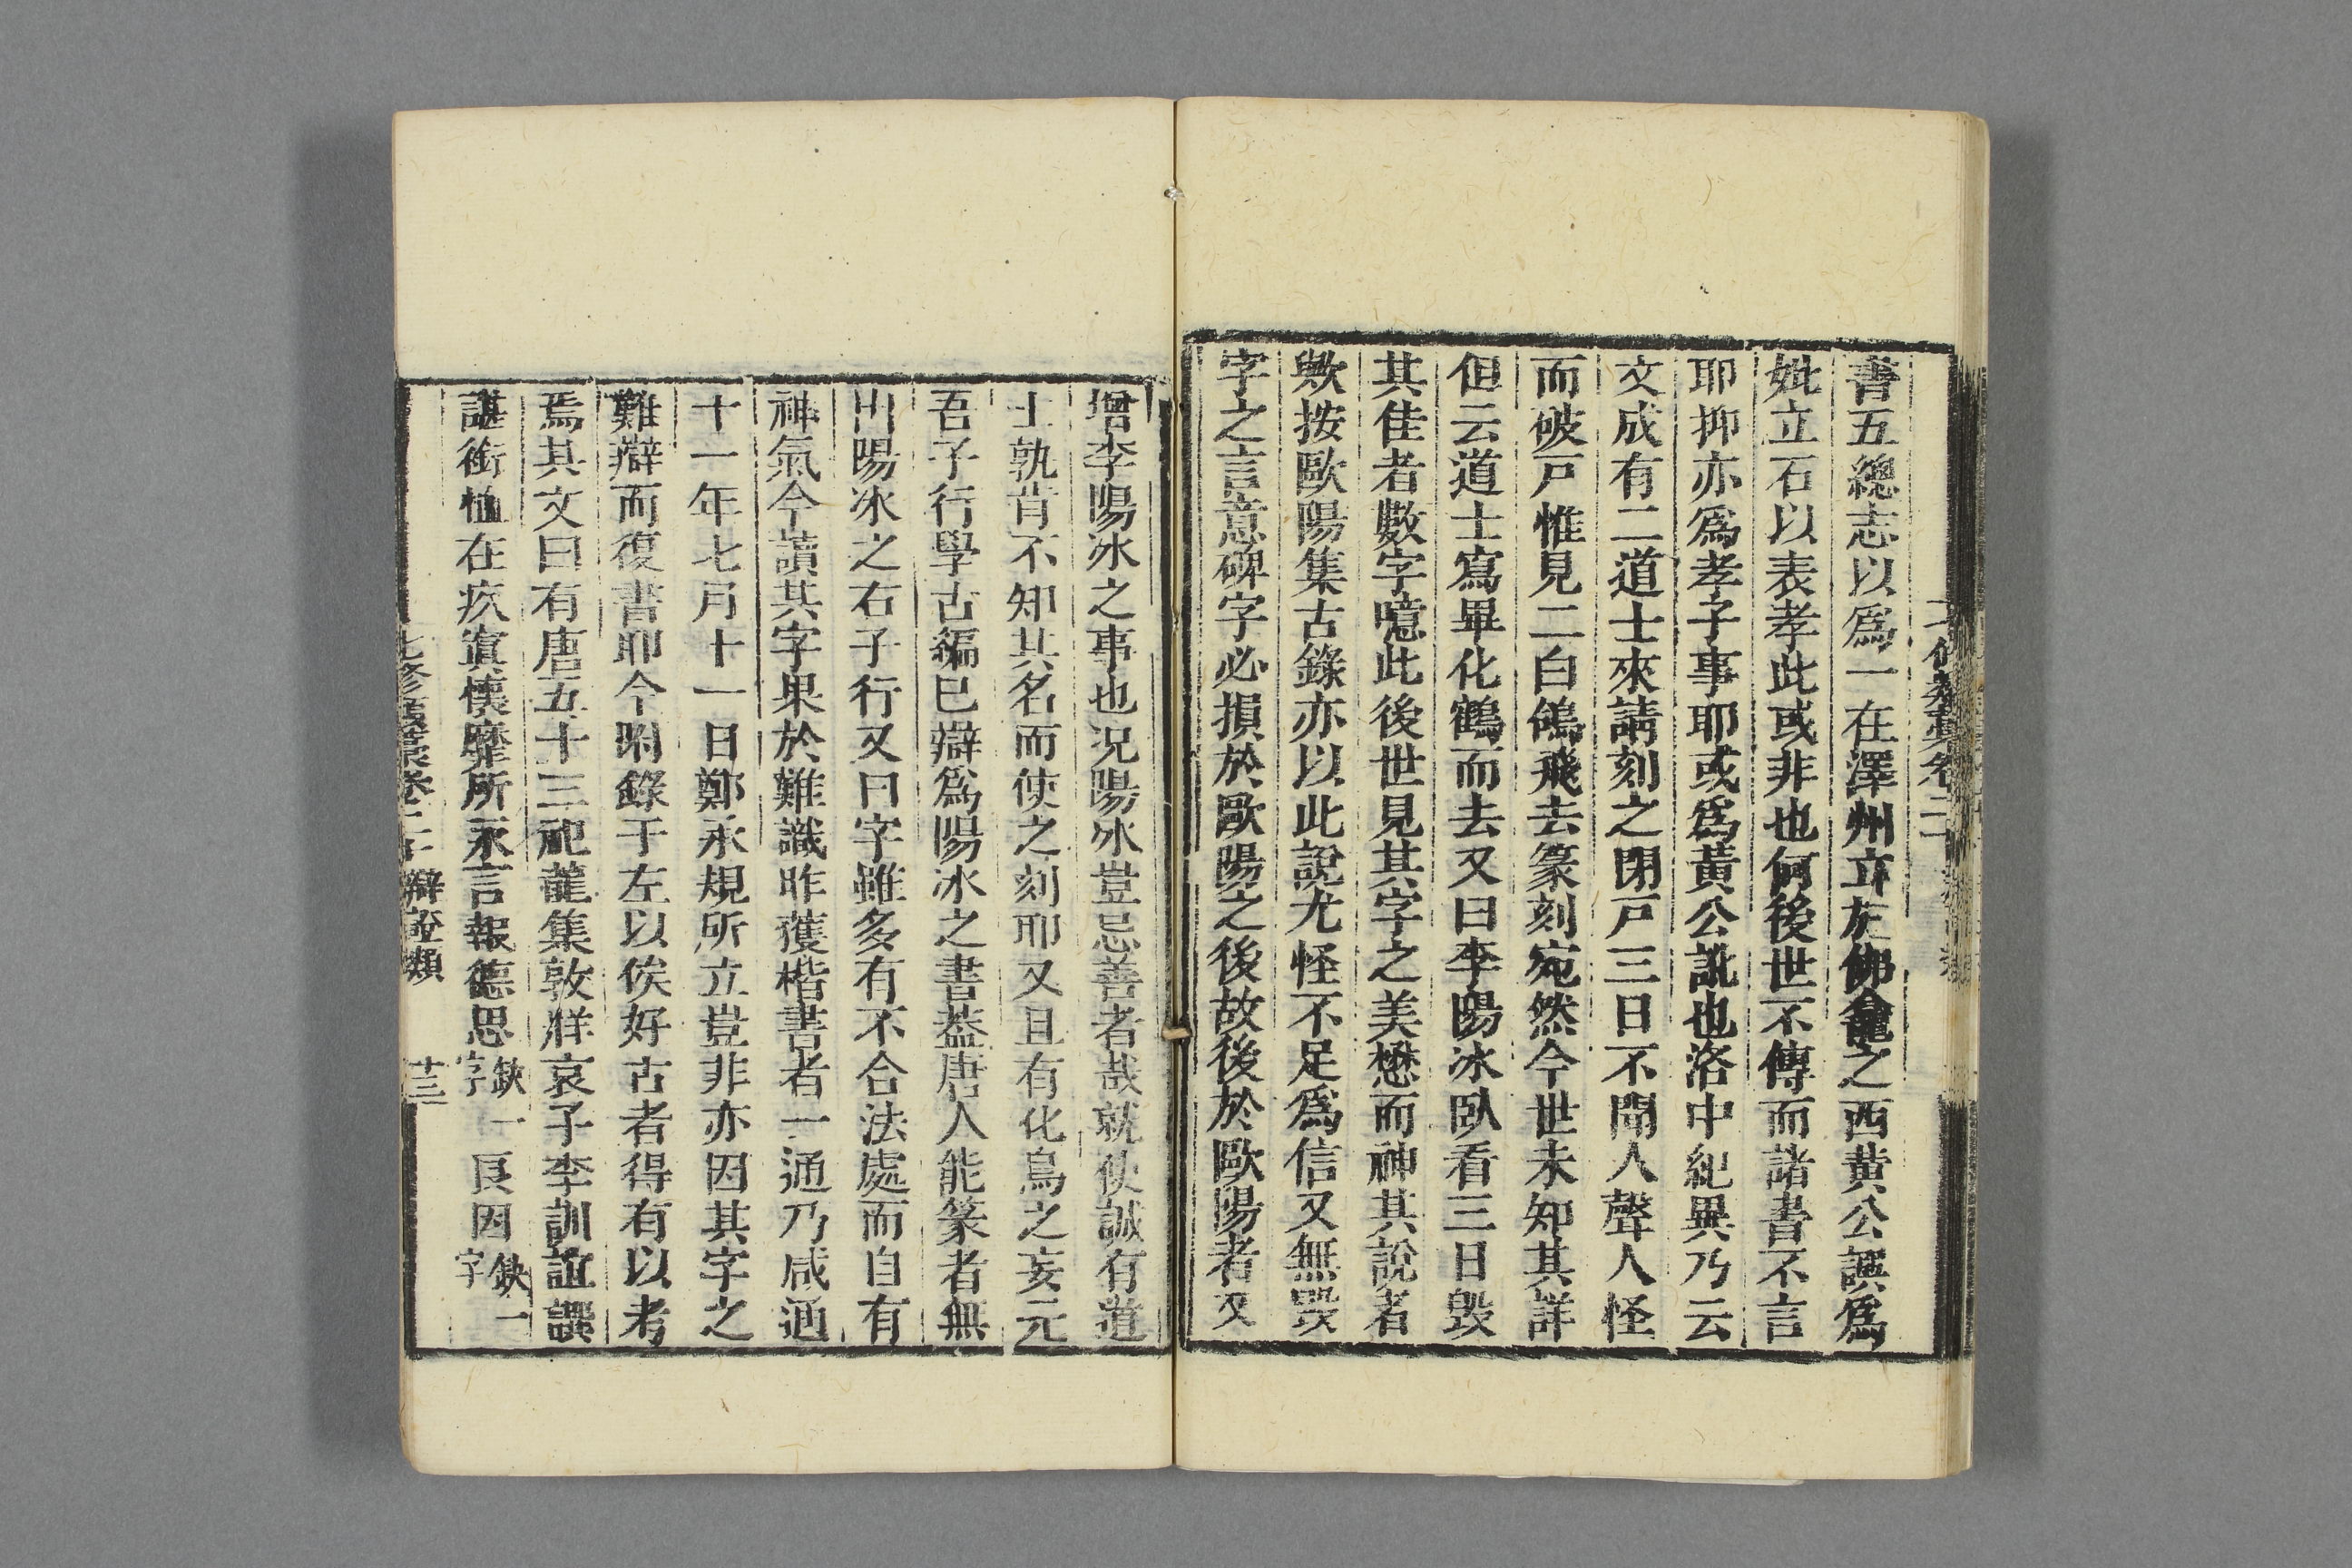 書五總志以為一在澤州立於佛龕之西黄公譔爲
妣立石以表孝此或非也何後世不傳而諸書不言
耶抑亦爲孝子事耶或爲黃公訛也洛中紀異乃云
文成有二道士來請刻之閉戸三日不聞人聲人怪
而破戸惟見二白鴿飛去篆刻宛然今世未知其詳
但云道士寫畢化鶴而去又曰李陽冰臥看三日毀
其佳者數字噫此後世見其字之美懋而神其說者
歟按歐陽集古錄亦以此說尤怪不足爲信又無毀
字之言意碑字必損於歐陽之後故後於歐陽者又
增李陽冰之事也况陽冰豈忌善者哉就使誠有道
士孰肯不知其名而使之刻耶又且有化鳥之妄元
吾子行學古編已辯爲陽冰之書葢唐人能篆者無
出陽冰之右子行又曰字雖多有不合法處而自有
神氣今讀其字果於難識昨獲楷書者一通乃咸通
十一年七月十一日鄭承規所立豈非亦因其字之
難辯而復書耶今附錄于左以俟好古者得有以考
焉其文曰有唐五十三祀龍集敦牂哀子李訓誼譔
諶銜恤在疚寘懷靡所永言報德思缺一字良因缺一字
七修類藁卷二十 辯證類 廿三